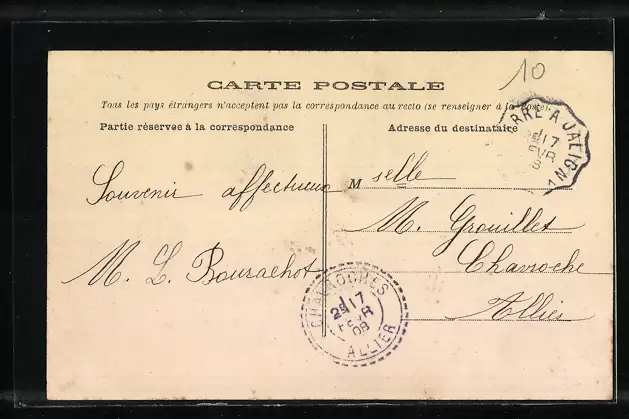 10
CARTE POSTALE
Tous les pays étrangers n'acceptent pas la correspondance au recto (se renseigner à la poste).
Partie réservée à la correspondance
Adresse du destinataire
RRE A JALIGN
17
Souvenir affectueux
M selle
M. Grouillet
M. L. Bourachot
Chavroche
Allier
CHAVROCHES
2E 17
FEVR
08
ALLIER